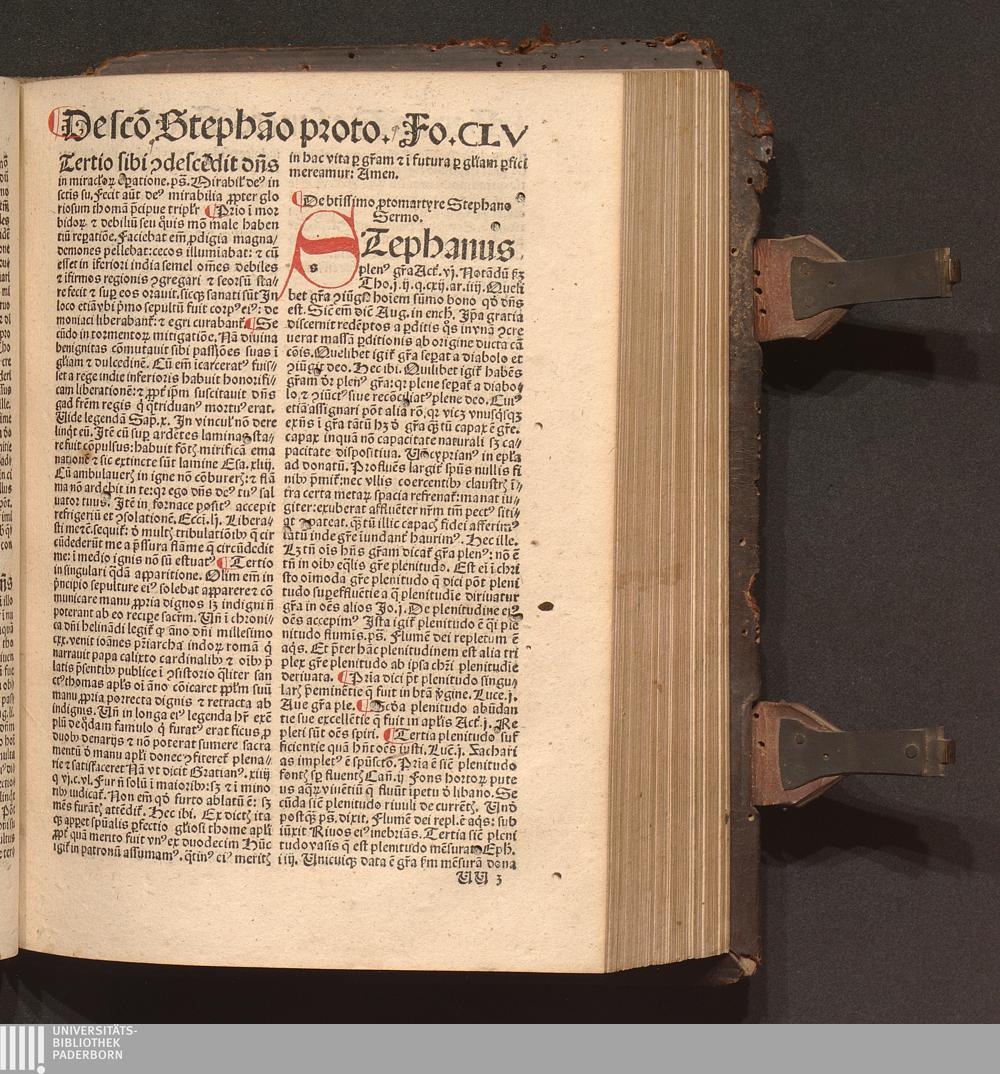 De scō Stephāo proto. Fo. CLV
Tertio sibi ↄdescēdit dn̄s
in miraclorꝝ opatione. ps̄. Mirabil' deꝰ in
sctis su, Fecit aūt deꝰ mirabilia ꝓpter glo
riosum thomā p̄cipue tripl'r ¶ Prīo ī mor
bidoꝝ ⁊ debiliū seu q̄uis mō male haben
tiū repatiōe. Faciebat em̄ ꝓdigia magna/
demones pellebat: cecos illumiabat: ⁊ cū
esset in iferiori india semel om̄es debiles
⁊ ifirmos regionis ↄgregari ⁊ seorsū sta/
re fecit ⁊ sup eos orauit. sicqꝫ sanati sūt In
loco etiā vbi p̄mo sepultū fuit corpꝰ eiꝰ: de
moniaci liberabanf: ⁊ egri curabanf ¶ Se
cūdo in tormentoꝝ mitigatiōe. Nā diuina
benignitas cōmutauit sibi passiōes suas ī
gl'iam ⁊ dulcedinē. Cū em̄ īcarceratꝰ fuis/
set a rege indie inferioris habuit honorifi/
cam liberationē: ⁊ ꝓpt' ip̄m suscitauit dn̄s
gad frēm regis q̄ q̄triduanꝰ mortuꝰ erat.
Uide legendā Sap. x. In vincul' nō dere
linq̄t eū. Itē cū sup ardētes laminas sta/
re fuit cōpulsus: habuit fōtē mirificā ema
nationē ⁊ sic extincte sūt lamine Esa. xliij.
Cū ambulauerꝭ in igne nō cōburerꝭ: ⁊ flā
ma nō ardebit in te: qꝛ ego dn̄s deꝰ tuꝰ sal
uator tuus. Itē in fornace positꝰ accepit
refrigeriū et ↄsolationē. Ecci. lj. Libera/
sti me ⁊c̄. sequit: ꝺ mult' tribulatiōibꝰ q̄ cir
cūdederūt me a p̄ssura flāme q̄ circūdedit
me: ī medio ignis nō sū estuatꝰ ¶ Tertio
in singulari q̄dā apparitione. Olim em̄ in
p̄ncipio sepulture eiꝰ solebat apparere ⁊ cō
municare manu ꝓpria dignos lꝫ indigni n̄
poterant ab eo recipe sacrm̄. Un̄ ī chroni/
ca dn̄i helinādi legif q̄ āno dn̄i millesimo
cxx. venit ioānes p̄riarcha indoꝝ romā q̄
narrauit papa calixto cardinalibꝰ ⁊ oībꝰ p̄
latis p̄sentibꝰ publice ī ↄsistorio q̄liter san
ctꝰ thomas apl's oī āno cōicaret ppl'm suū
manu ꝓpria porrecta dignis ⁊ retracta ab
indignis. Un̄ in longa eiꝰ legenda hr̄ exē
plū de q̄dam famulo q̄ furatꝰ erat ficus ꝓ
duobꝰ denarijs ⁊ nō poterat sumere sacra
mentū ꝺ manu apl'i donec ↄfiteref plena/
rie ⁊ satisfaceret Nā vt dicit Gratianꝰ. xiiij
q vj. c. vl. Fur n̄ solū ī maioribꝰ: sꝫ ⁊ ī mino
ribꝰ iudicaf. Non em̄ qd̄ furto ablatū ē: sꝫ
mēs furātꝭ attēdif. Hec ibi. Ex dictꝭ ita
qꝫ apparet sp̄ualis ꝑfectio gl'iosi thome apl'i
ꝓpt' quā merito fuit vnꝰ ex duodecim Hūc
igif in patronū assumamꝰ. q̄tinꝰ eiꝰ meritꝭ
in hac vita ꝑ gr̄am ⁊ ī futura ꝑ gl'iam ꝑfici
mereamur: Amen.
¶ De btissimo ꝓtomartyre Stephano
Sermo.
STephanus
plenꝰ gr̄a Act. vj. Notādū ẜꝫ
Tho. j. ij. q. cxij. ar. iiij. Queli
bet gr̄a ↄiūgit hoīem sūmo bono qd̄ dn̄s
est. Sic em̄ dic̄ Aug. in ench. Ip̄a gratia
discernit redēptos a ꝑditis q̄s in vnā ↄcre
uerat massā ꝑditionis ab origine ducta cā
cōis. Quelibet igif gr̄a separat a diabolo et
ↄiūgit deo. Hec ibi. Quilibet igif habēs
gr̄am dꝛ plenꝰ gr̄a: qꝛ plene separat a diabo/
lo, ⁊ ↄiūctꝰ siue recōciliatꝰ plene deo. Cuiꝰ
etiā assignari pōt alia rō, qꝛ vicꝫ vnusq̄sqꝫ
exn̄s ī gr̄a tātū hꝫ ꝺ gr̄a q̄tū capax ē gr̄e.
capax inquā nō capacitate naturali sꝫ ca/
pacitate dispositiua. Un̄ cyprianꝰ in ep̄la
ad donatū. Profluēs largif sp̄us nullis fi
nibꝰ p̄mif: nec vllis coercentibꝰ claustrꝭ ī/
tra certa metaꝝ spacia refrenaf: manat iu/
giter: exuberat affluēter nr̄m tm̄ pectꝰ siti/
at ⁊ pateat. q̄tū illic capacꝭ fidei afferimꝰ
tātū inde gr̄e iundantꝭ haurimꝰ. Hec ille.
Lꝫ tn̄ oīs hn̄s gr̄am dicaf gr̄a plenꝰ: nō ē
tn̄ in oībꝰ eq̄lis gr̄e plenitudo. Est ei ī chri
sto oīmoda gr̄e plenitudo q̄ dici pōt pleni
tudo suꝑeffluētie a q̄ plenitudīe diriuatur
gr̄a in oēs alios Jo. j. De plenitudine eiꝰ
oēs accepimꝰ Ista igif plenitudo ē q̄si ple
nitudo flumīs. ps̄. Flumē dei repletum ē
aq̄s. Et p̄ter hāc plenitudinem est alia tri
plex gr̄e plenitudo ab ipsa chr̄i plenitudīe
deriuata. ¶ Prīa dici p̄t plenitudo singu/
larꝭ p̄eminētie q̄ fuit in btā v̄gine. Luce. j.
Aue gr̄a ple. ¶ Scd̄a plenitudo abūdan
tie sue excellētie q̄ fuit in apl'is Act. j. Re
pleti sūt oēs spiri. ¶ Tertia plenitudo suf
ficientie quā hn̄t oēs iusti, Luc̄. j. Zachari
as impletꝰ ē sp̄uscto. Prīa ē sic̄ plenitudo
fontꝭ sp̄ fluentꝭ Can̄. iiij Fons hortoꝝ pute
us aq̄ꝝ viuētiū q̄ fluūt īpetu ꝺ libano. Se
cūda sic̄ plenitudo riuuli de currētꝭ. Un̄
postq̄ꝫ ps̄. dixit. Flumē dei repl. ē aq̄s: sub
iūxit Riuos eiꝰ inebriās. Tertia sic̄ pleni
tudo vasis q̄ est plenitudo mēsurata Eph.
iiij. Unicuiqꝫ data ē gr̄a ẜm mēsurā dona
UU 3
UNIVERSITÄTS-
BIBLIOTHEK
PADERBORN